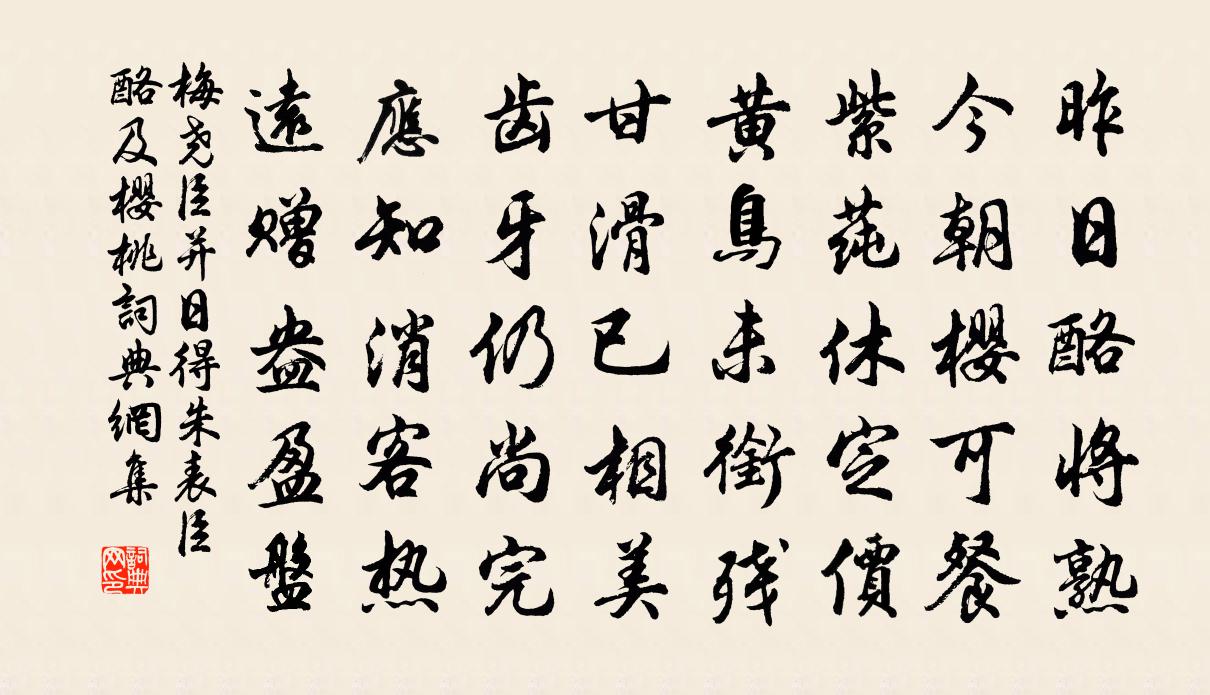 昨日酪将熟
今朝櫻可餐
紫莼休定價
黄鳥未銜残
甘滑已相美
齿牙仍尚完
應知消客热
遠赠盎盈盤
梅尧臣并日得朱表臣
酪及櫻桃詞典網集
詞典网印